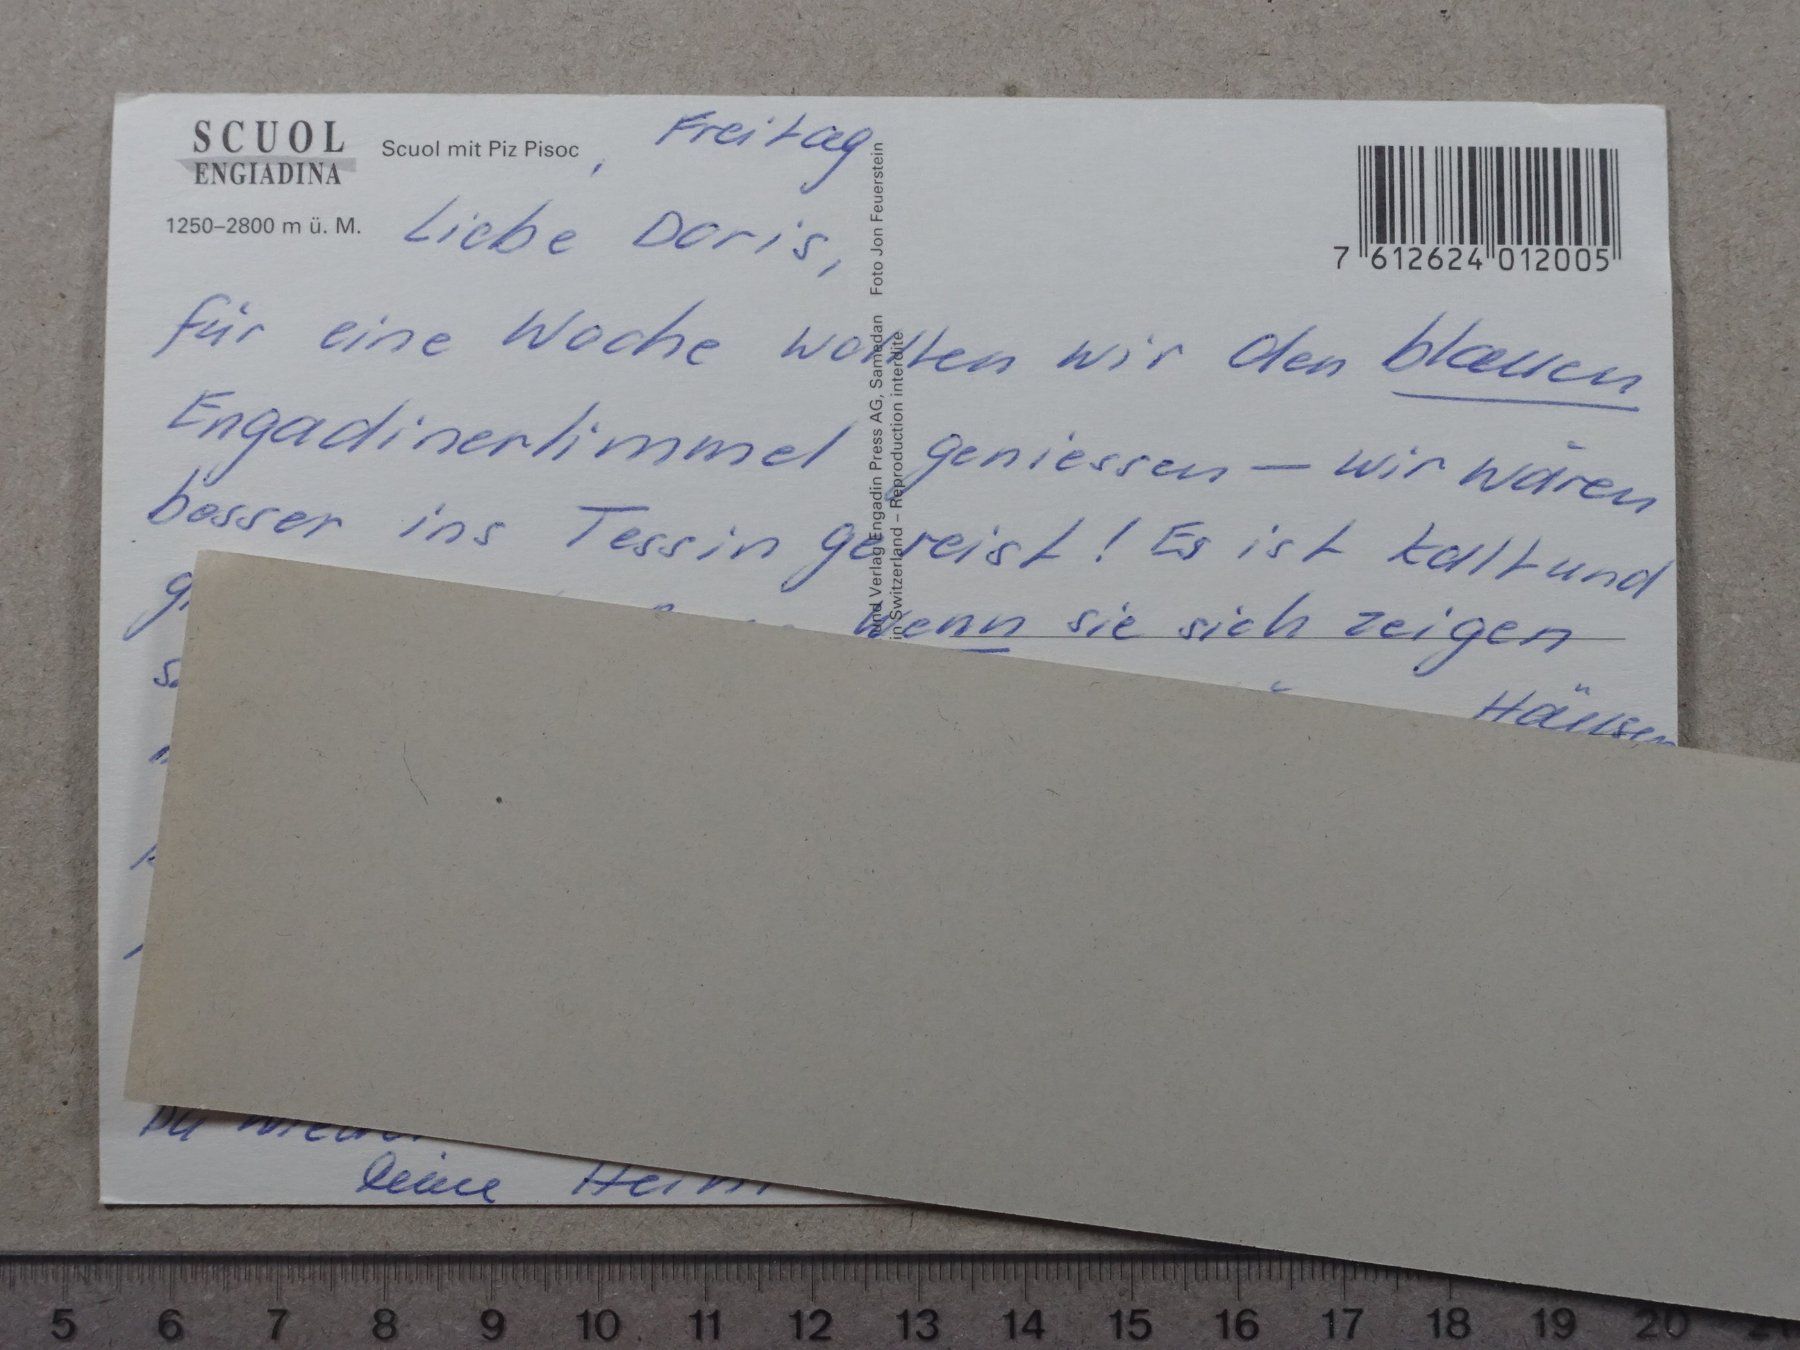 SCUOL
ENGIADINA
Scuol mit Piz Pisoc
, Freitag
1250–2800 m ü. M.
Liebe Doris,
für eine Woche wollten wir den blauen
Engadinerhimmel geniessen – wir wären
besser ins Tessin gereist! Es ist kalt und
wenn sie sich zeigen
Häuser
Du wieder
Deine
und Verlag Engadin Press AG, Samedan Foto Jon Feuerstein
in Switzerland – Reproduction interdite
7 612624 012005
5 6 7 8 9 10 11 12 13 14 15 16 17 18 19 20